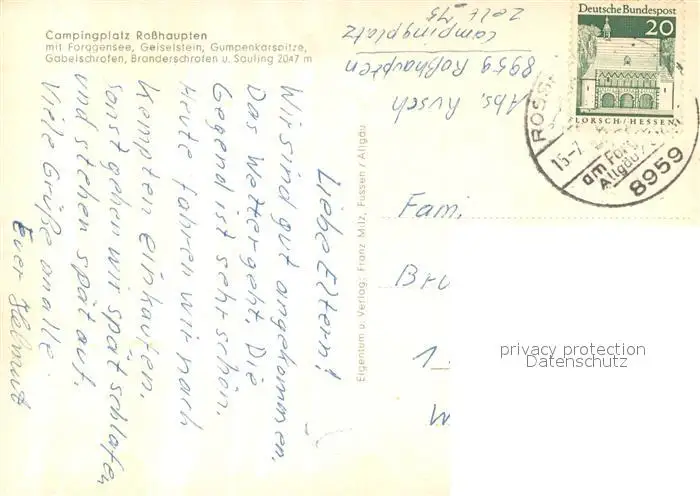 Campingplatz Roßhaupten
mit Forggensee, Geiselstein, Gumpenkarspitze,
Gabelschrofen, Branderschrofen u. Säuling 2047 m
Liebe Eltern!
Wir sind gut angekommen.
Das Wetter geht. Die
Gegend ist sehr schön.
Heute fahren wir nach
Kempten einkaufen.
sonst gehen wir spät schlafen
und stehen spät auf.
Viele Grüße an alle
Euer Helmut
Eigentum u. Verlag: Franz Milz, Füssen / Allgäu
Abs. Rusch
8959 Roßhaupten
Campingplatz
Zelt 75
Deutsche Bundespost
20
LORSCH/HESSEN
ROSS
15-7
am For
Allgäu
8959
Fami
Bru
1
W
privacy protection
Datenschutz